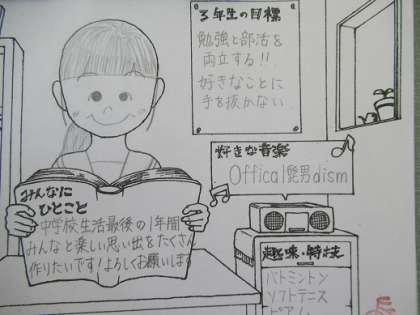 3年生の目標
勉強と部活を
両立する!!
好きなことに
手を抜かない
好きな音楽
Offical髭男dism
みんなに
ひとこと
中学校生活最後の1年間
みんなと楽しい思い出をたくさん
作りたいです!よろしくお願いします
趣味・特技
バドミントン
ソフトテニス
ピアノ